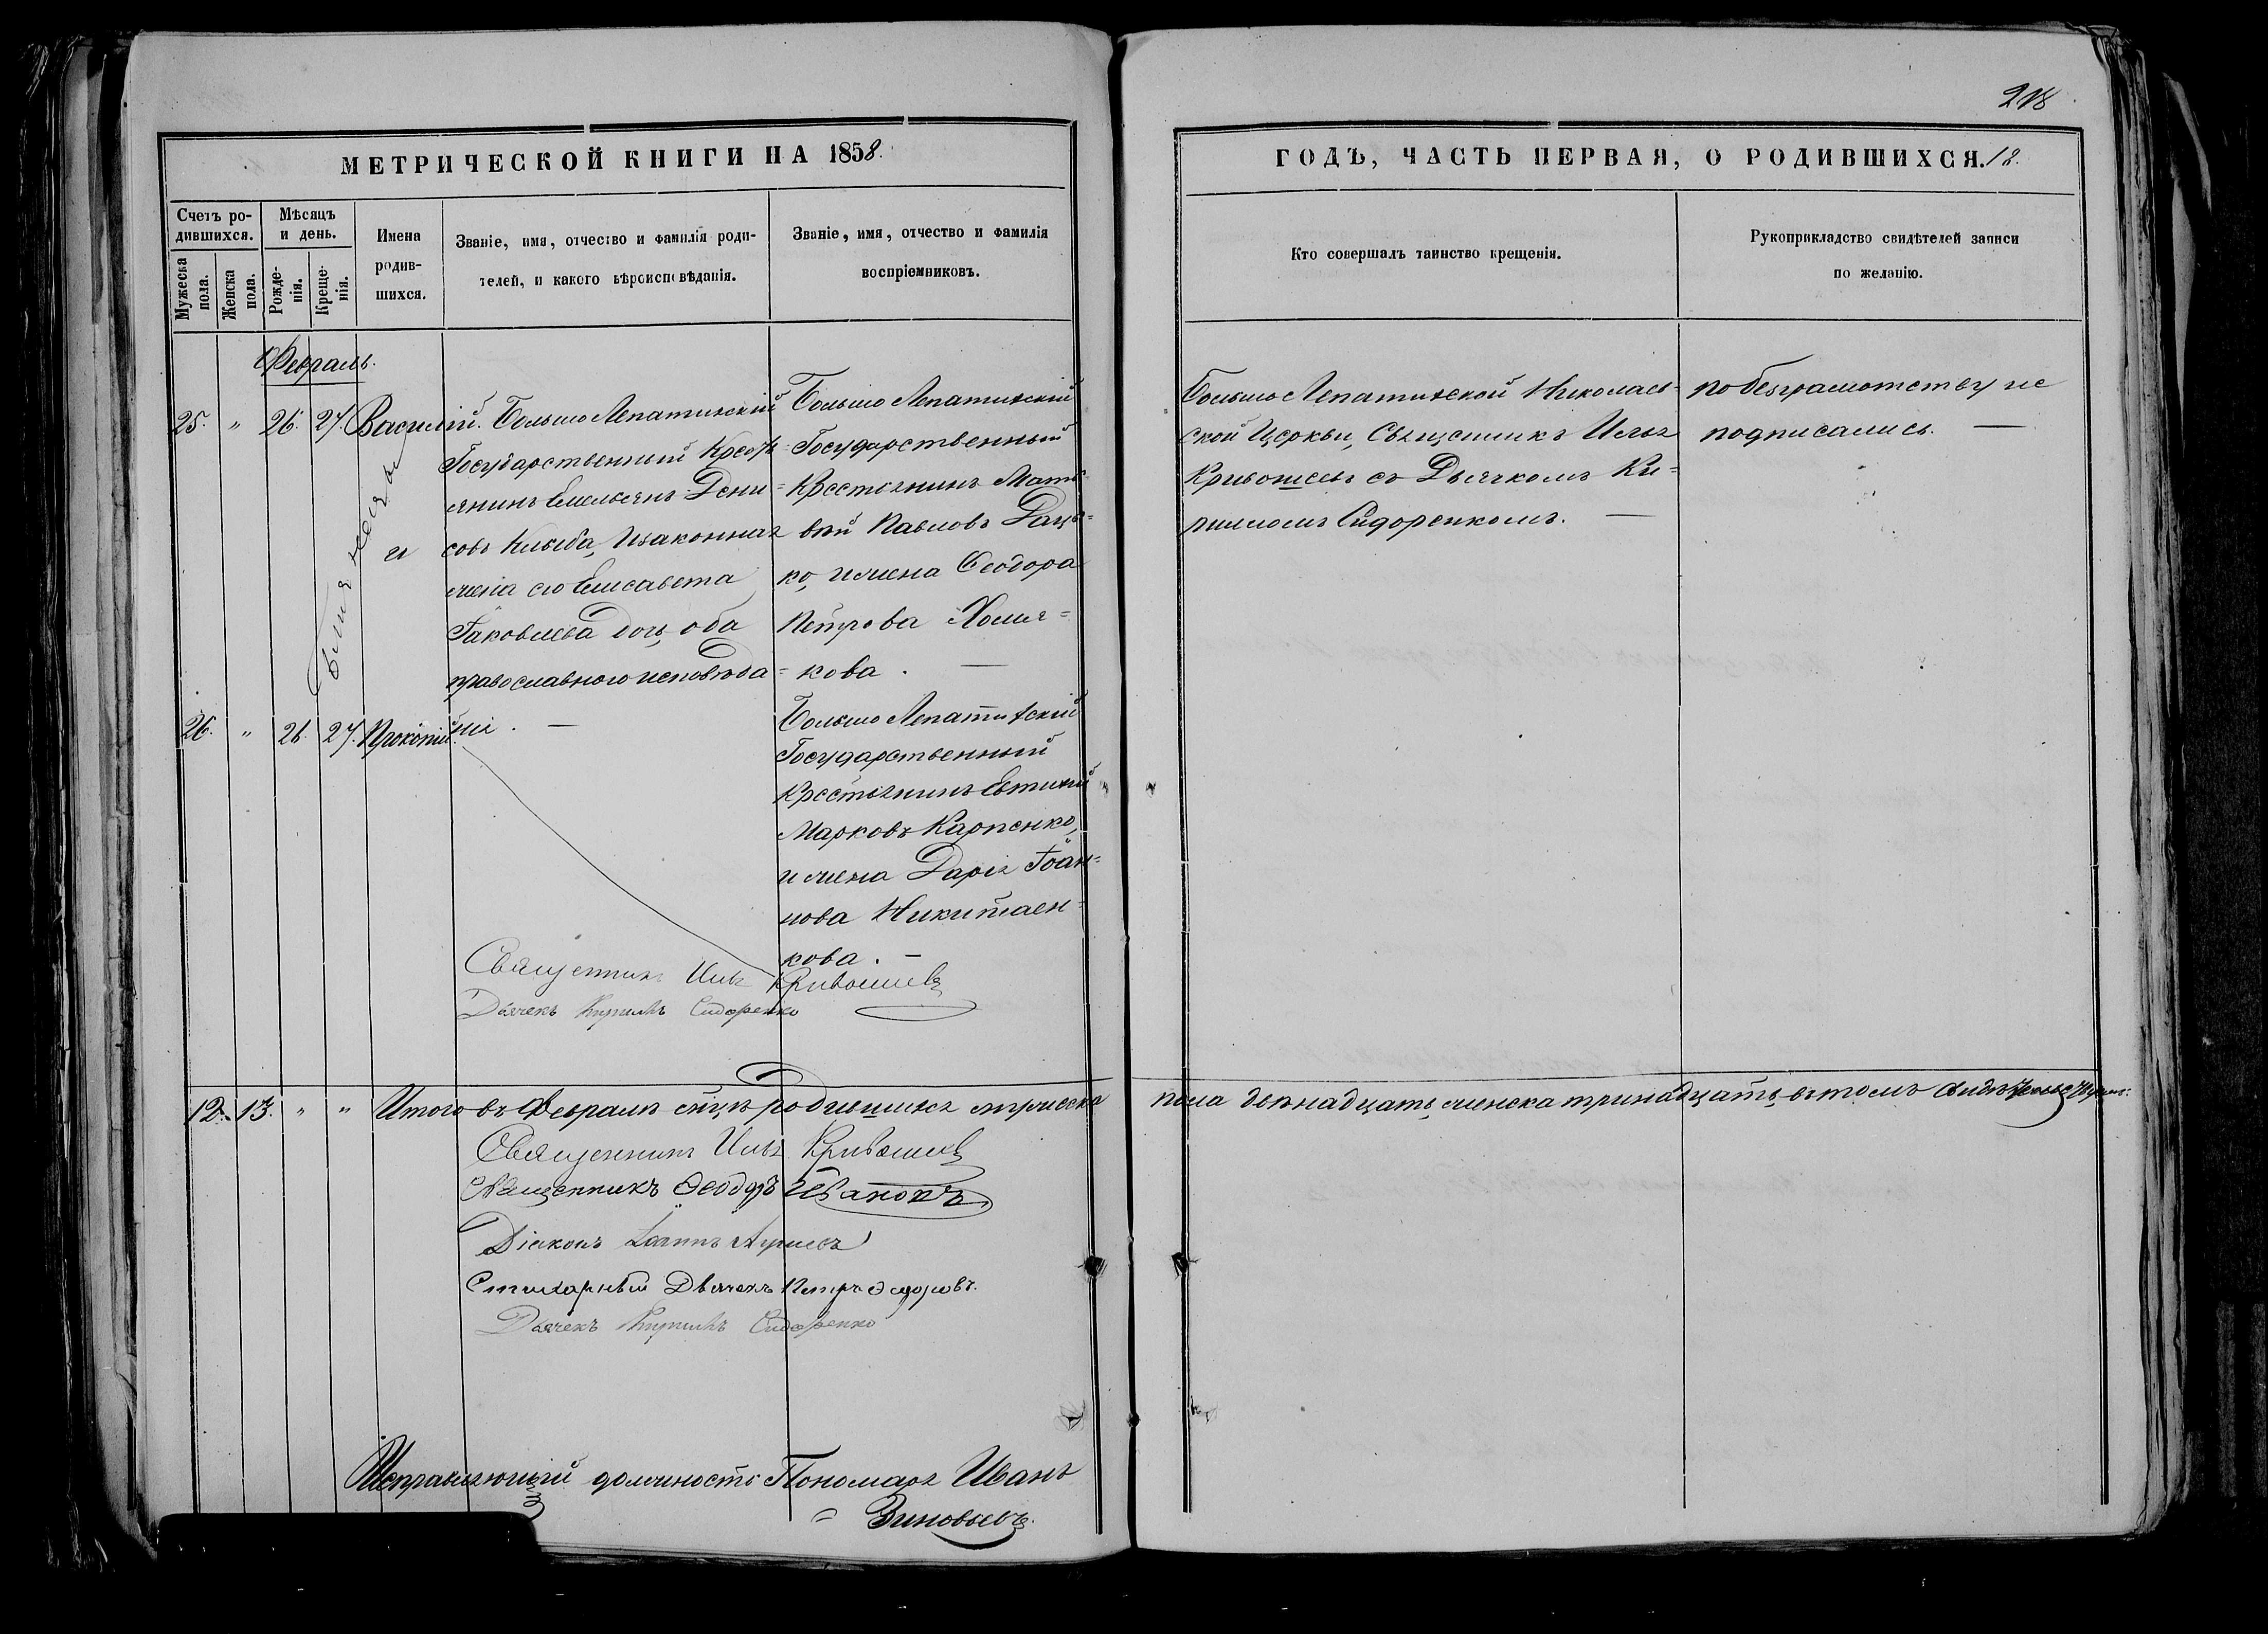 218
МЕТРИЧЕСКОЙ КНИГИ НА 1858.
ГОДЪ, ЧАСТЬ ПЕРВАЯ, О РОДИВШИХСЯ. 18.
Счетъ ро-
дившихся.
Мужеска
пола.
Женска
пола.
Мѣсяцъ
и день.
Рожде-
нія.
Креще-
нія.
Имена
родив-
шихся.
Званіе, имя, отчество и фамилія роди-
телей, и какого вѣроисповѣданія.
Званіе, имя, отчество и фамилія
воспріемниковъ.
Кто совершалъ таинство крещенія.
Рукоприкладство свидѣтелей записи
по желанію.
Февраль.
25. " 26. 27. Василій.
и
Большо Лепатихскій
Государственный Кресть-
янинъ Емельянъ Дени-
совъ Клыба, и законная
жена его Елисавета
Іаковлева дочь, оба
православнаго исповѣда-
нія. —
Большо Лепатихскій
Государственный
Крестьянинъ Мат-
вѣй Павловъ Даць-
ко, и жена Ѳеодора
Петрова Хомя-
кова. —
Большо Лепатихской Николаев-
ской Церкви, Священникъ Илья
Кривошеевъ съ Дьячкомъ Ки-
рилломъ Сидоренкомъ. —
по безграмотству не
подписались. —
26. " 26. 27. Прокопій.
Большо Лепатихскій
Государственный
Крестьянинъ Евтихій
Марковъ Карпенко,
и жена Дарія Іоан-
нова Никитаен-
кова. —
Священникъ Илья Кривошеевъ
Дьячекъ Кириллъ Сидоренко
12. 13. " " Итого въ Февралѣ м̃цѣ родившихся мужеска пола двѣнадцать, женска тринадцать, въ томъ
Священникъ Илья Кривошеевъ
Священникъ Ѳеодоръ Ивановъ
Діаконъ Іоаннъ
Стихарный Дьячекъ Петръ
Дьячекъ Кириллъ Сидоренко
Исправляющій должность Пономаря Иванъ
Зиновьевъ.